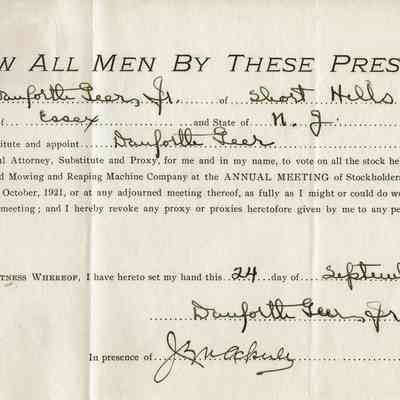 W ALL MEN BY THESE PRES
Danforth Geer, Jr. of Short Hills
f Essex and State of N. J.
titute and appoint Danforth Geer
al Attorney, Substitute and Proxy, for me and in my name, to vote on all the stock hel
d Mowing and Reaping Machine Company at the ANNUAL MEETING of Stockholders
October, 1921, or at any adjourned meeting thereof, as fully as I might or could do we
meeting; and I hereby revoke any proxy or proxies heretofore given by me to any pe
TNESS WHEREOF, I have hereto set my hand this 24 day of Septemb
Danforth Geer, Jr
In presence of